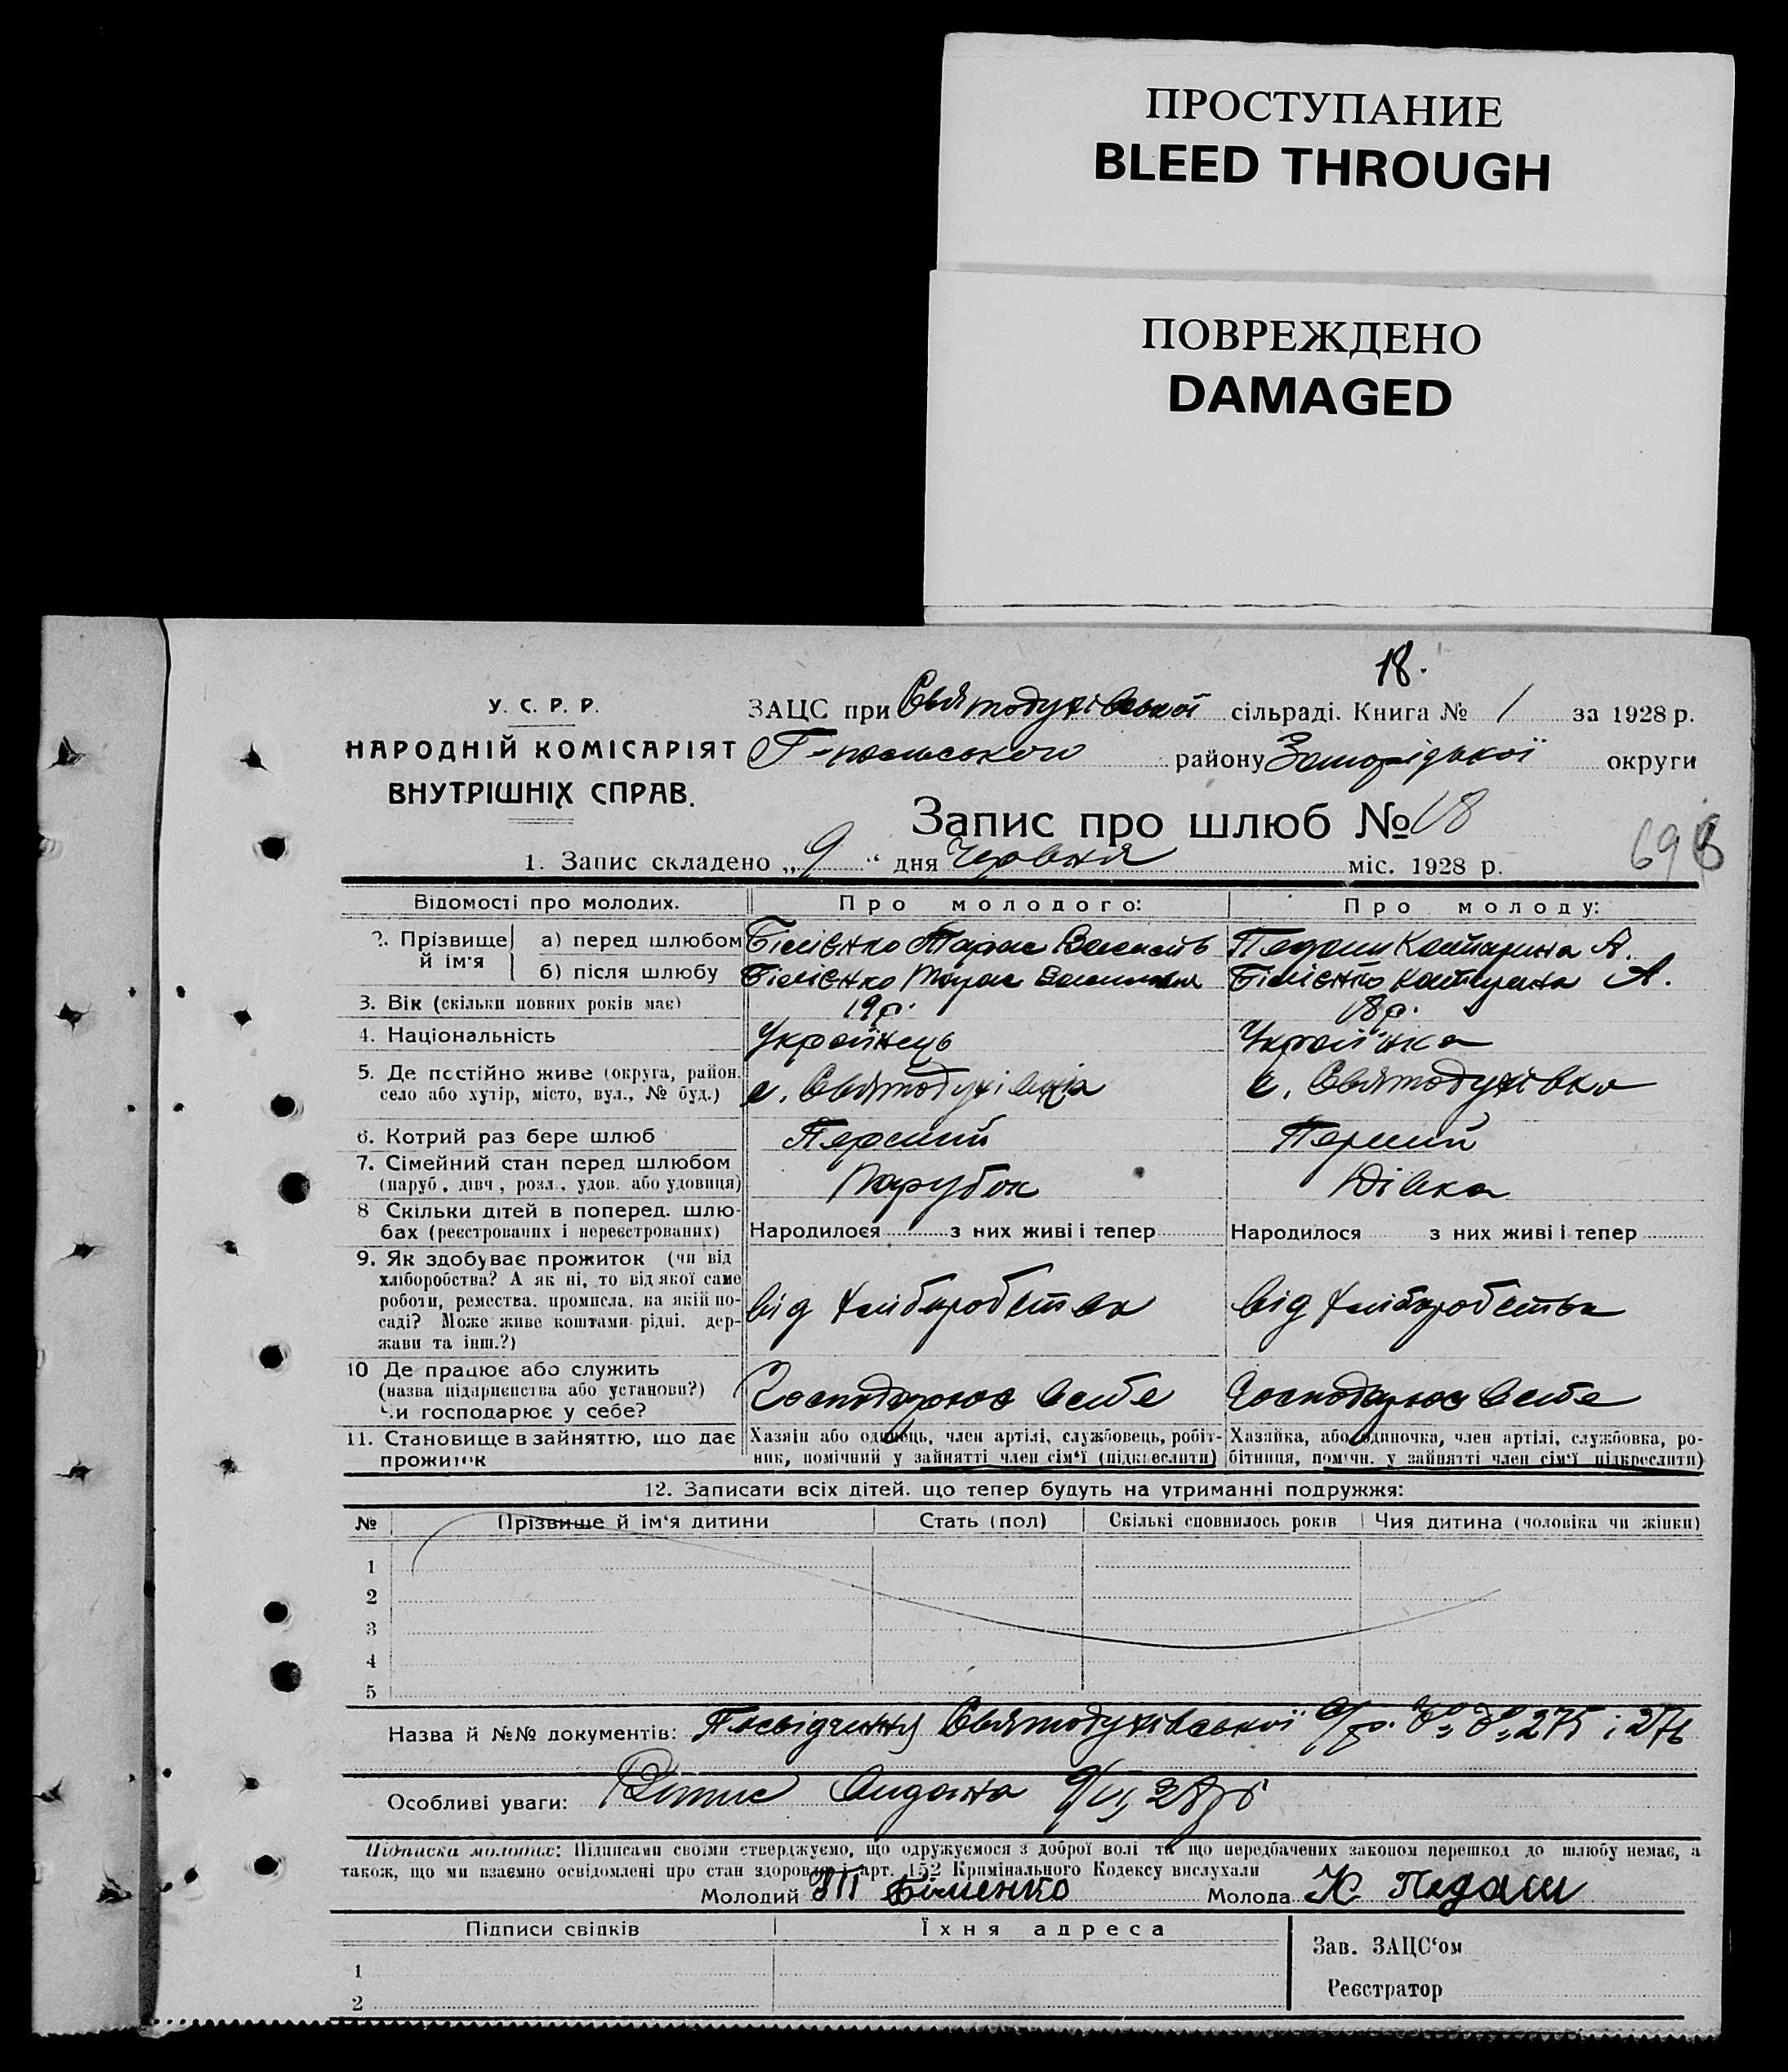 ПРОСТУПАНИЕ
BLEED THROUGH
ПОВРЕЖДЕНО
DAMAGED
18.
У. С. Р. Р.
НАРОДНІЙ КОМІСАРІЯТ
ВНУТРІШНІХ СПРАВ.
ЗАЦС при Святодухівської сільраді. Книга № 1 за 1928 р.
району Запорізької округи
Запис про шлюб № 18
69
1. Запис складено „9“ дня Червня міс. 1928 р.
Відомості про молодих. Про молодого: Про молоду:
2. Прізвище й ім'я а) перед шлюбом Білієнко Тарас Василь Педаш Катарина А.
б) після шлюбу Білієнко Тарас Катерина А.
3. Вік (скільки повних років має) 19 р. 18 р.
4. Національність Українець Українка
5. Де постійно живе (округа, район. с. Святодухівка
село або хутір, місто, вул., № буд.) с. Святодухівка
6. Котрий раз бере шлюб Перший Перший
7. Сімейний стан перед шлюбом
(паруб., дівч., розл., удов. або удовиця) Парубок Дівка
8 Скільки дітей в поперед. шлю-
бах (реєстрованих і нереєстрованих) Народилося з них живі і тепер Народилося з них живі і тепер
9. Як здобуває прожиток (чи від
хліборобства? А як ні, то від якої саме
роботи, ремества. промисла, на якій по-
саді? Може живе коштами рідні. дер-
жави та інш.?) від хліборобства від хліборобства
10 Де працює або служить
(назва підприєнства або установи?)
Чи господарює у себе? Господарює в себе Господарює в себе
11. Становище в зайняттю, що дає
прожиток
Хазяїн або одинець, член артілі, службовець, робіт-
ник, помічний у зайнятті член сім'ї (підкреслити)
Хазяйка, або одиночка, член артілі, службовка, ро-
бітниця, помічн. у зайнятті член сім'ї підкреслити)
12. Записати всіх дітей. що тепер будуть на утриманні подружжя:
№ Прізвище й ім'я дитини Стать (пол) Скількі сповнилось років Чия дитина (чоловіка чи жінки)
1
2
3
4
5
Назва й №№ документів: Посвідчення Святодухівської с/р. 275 і 276
Особливі уваги: Видана 9/VI 28 р
Підписка молодих: Підписами своїми стверджуємо, що одружуємося з доброї волі та що передбачених законом перешкод до шлюбу немає, а
також, що ми взаємно освідомлені про стан здоровля і арт. 152 Крімінального Кодексу вислухали
Молодий Т Біліенко Молода К Педаш
Підписи свідків Їхня адреса
Зав. ЗАЦС'ом
1
Реєстратор
2